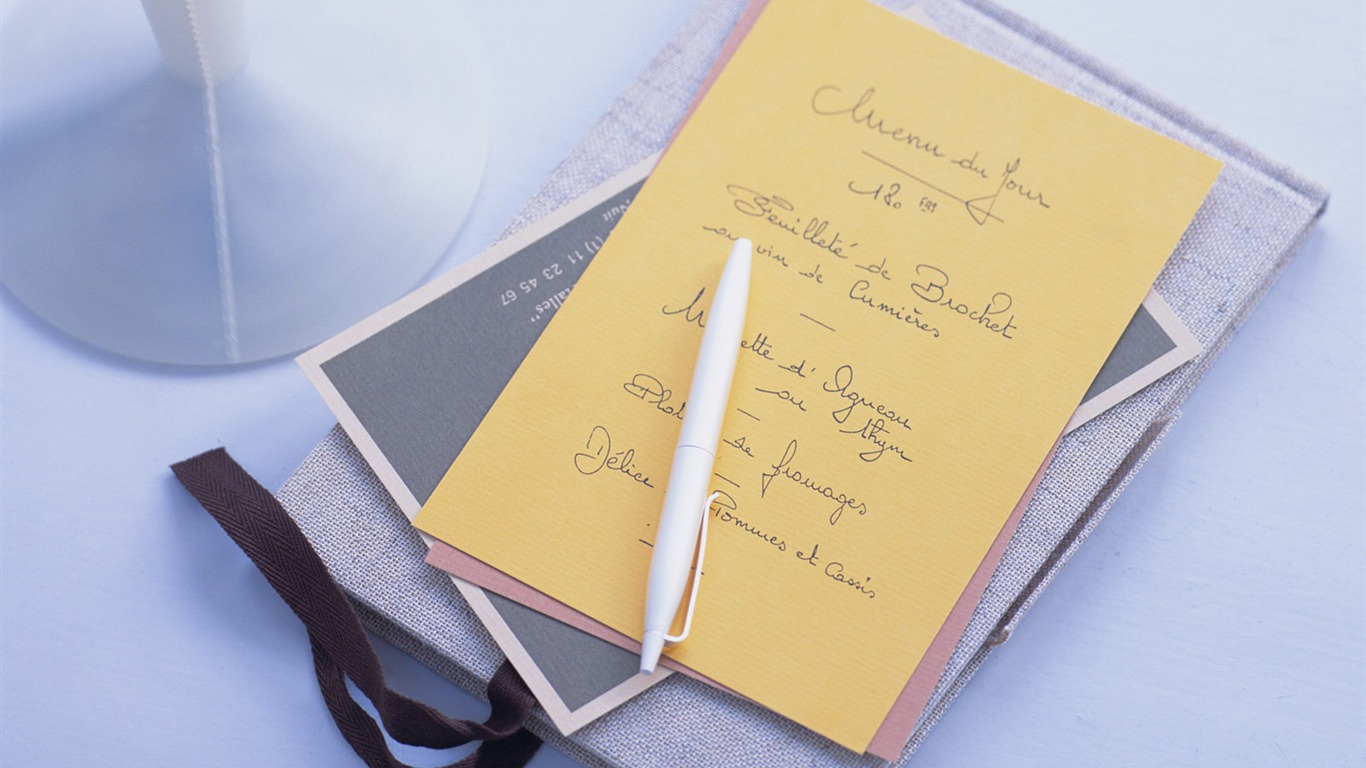 Menu du Jour
180 FRS
Feuilleté de Brochet
au vin de Cumières
ette d'Agneau
au thym
se fromages
Délice Pommes et Cassis
(1) 11 23 45 67
alles"